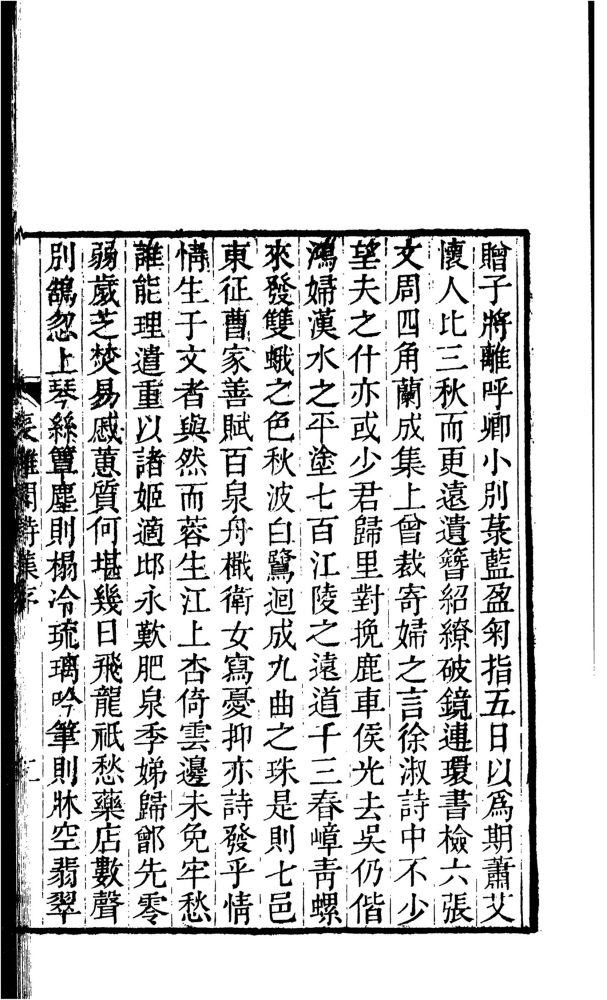 贈子將離呼卿小別菉藍盈匊指五日以爲期蕭艾
懷人比三秋而更遠遺簪紹繚破鏡連環書檢六張
文周四角蘭成集上曾裁寄婦之言徐淑詩中不少
望夫之什亦或少君歸里對挽鹿車侯光去吳仍偕
鴻婦漢水之平塗七百江陵之遠道千三春嶂青螺
來發雙蛾之色秋波白鷺迴成九曲之珠是則七邑
東征曹家善賦百泉舟檝衛女寫憂抑亦詩發乎情
情生于文者與然而蓉生江上杏倚雲邊未免牢愁
誰能理遣重以諸姬適邶永歎肥泉季娣歸鄫先零
弱歲芝焚易慼蕙質何堪幾日飛龍祇愁藥店數聲
別鵠忽上琴絲簟塵則榻冷琉璃吟筆則牀空翡翠
長離閣詩集序
三